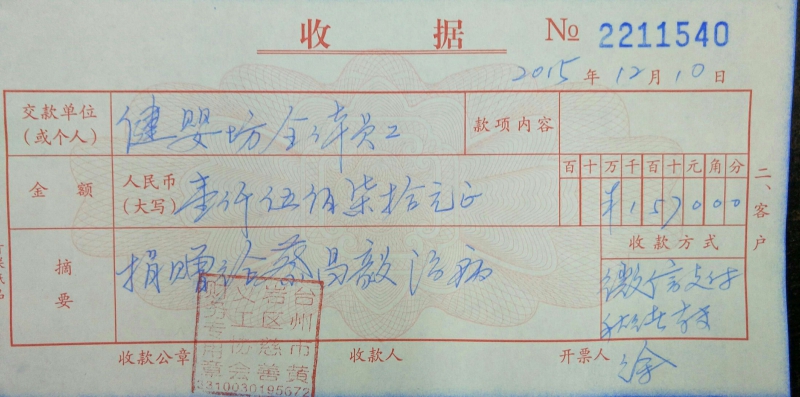 收 据 № 2211540
2015年12月10日
交款单位(或个人) 健婴坊全体员工 款项内容
金 额 人民币(大写) 壹仟伍佰柒拾元正 百十万千百十元角分 ¥157000
摘要 捐赠给蔡昌毅治病 收款方式
微信支付
收款公章 收款人 开票人 徐
二、客户
台州市黄
岩区慈善
义工协会
财务专用章
3310030195672